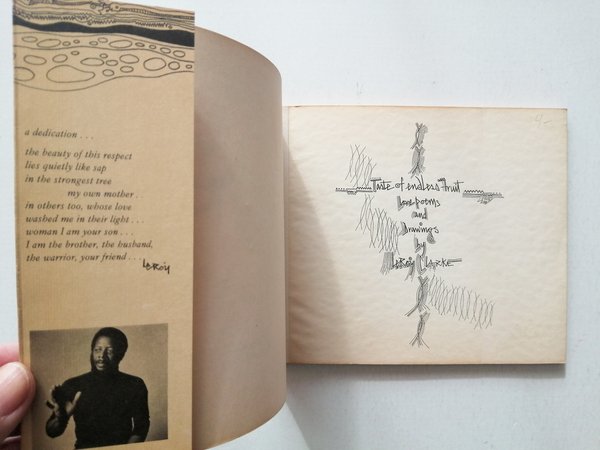 a dedication . . .
the beauty of this respect
lies quietly like sap
in the strongest tree
my own mother .
in others too, whose love
washed me in their light . . .
woman I am your son . . .
I am the brother, the husband,
the warrior, your friend . . .
LeRoy
4-
Taste of endless Fruit
Love poems
and
Drawings
by
LeRoy CLARKE